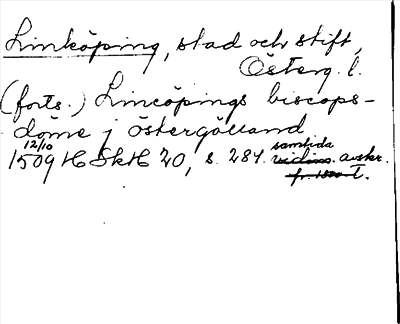 Linköping, stad och stift,
Österg. l.
(forts.) Lincöpings biscops-
döme j östergötland
12/10 samtida
1509 HSkH 20, s. 284. vidim. avskr.
fr. 1500 t.